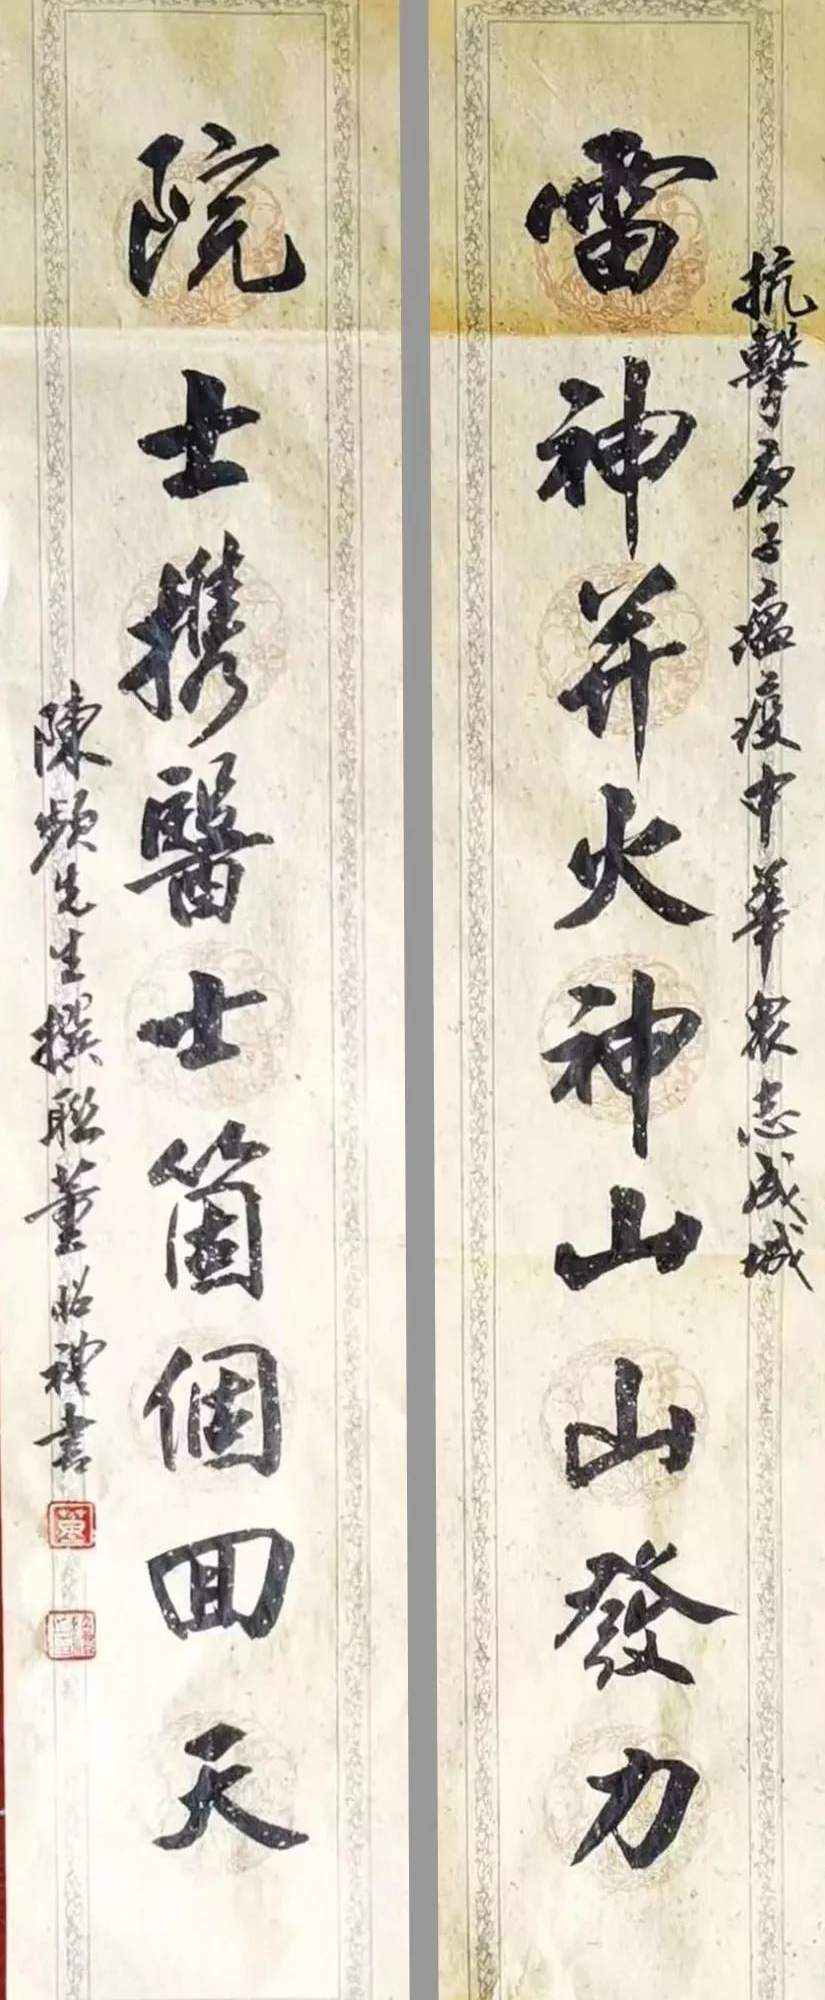 抗擊庚子瘟疫中華眾志成城
雷神并火神山山發力
院士攜醫士箇個回天
陳頻先生撰聯董昭禮書